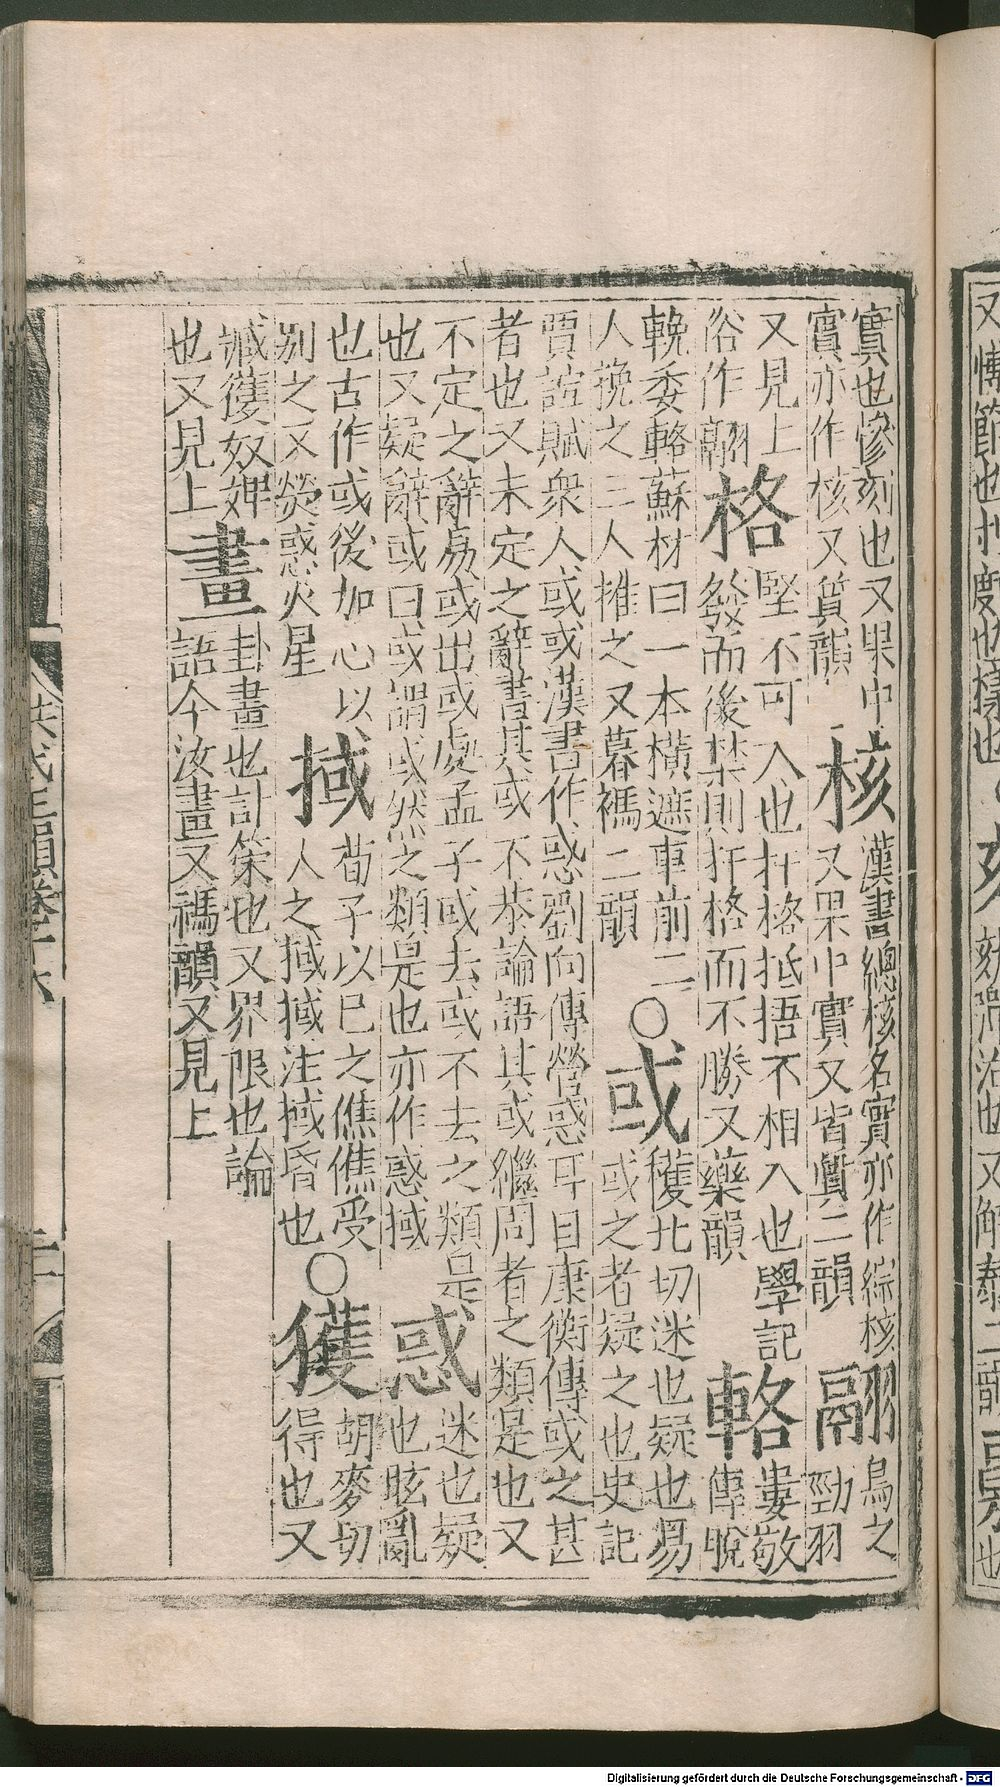 實也慘刻也又果中核漢書總核名實亦作綜核翮鳥之
實亦作核又質韻又果中實又皆質二韻勁羽
又見上格堅不可入也扞格抵捂不相入也學記輅婁敬
俗作翮發而後禁則扞格而不勝又藥韻傳脫
輓委輅蘇材曰一本橫遮車前二〇或穫北切迷也疑也易
人挽之三人推之又暮禡二韻或之者疑之也史記
賈誼賦衆人或或漢書作惑劉向傳營惑耳目康衡傳或之甚
者也又未定之辭書其或不恭論語其或繼周者之類是也又
不定之辭易或出或處孟子或去或不去之類是惑迷也疑
也又疑辭或曰或謂或然之類是也亦作惑掝也眩亂
也古作或後加心以掝荀子以巳之僬僬受〇獲胡麥切
別之又熒惑火星人之掝掝注掝昏也得也又
臧獲奴婢畫卦畫也計策也又界限也論
也又見上語今汝畫又禡韻又見上
洪武正韻卷十六
又情節也忖度也
劾治也又解泰二韻
Digitalisierung gefördert durch die Deutsche Forschungsgemeinschaft - DFG